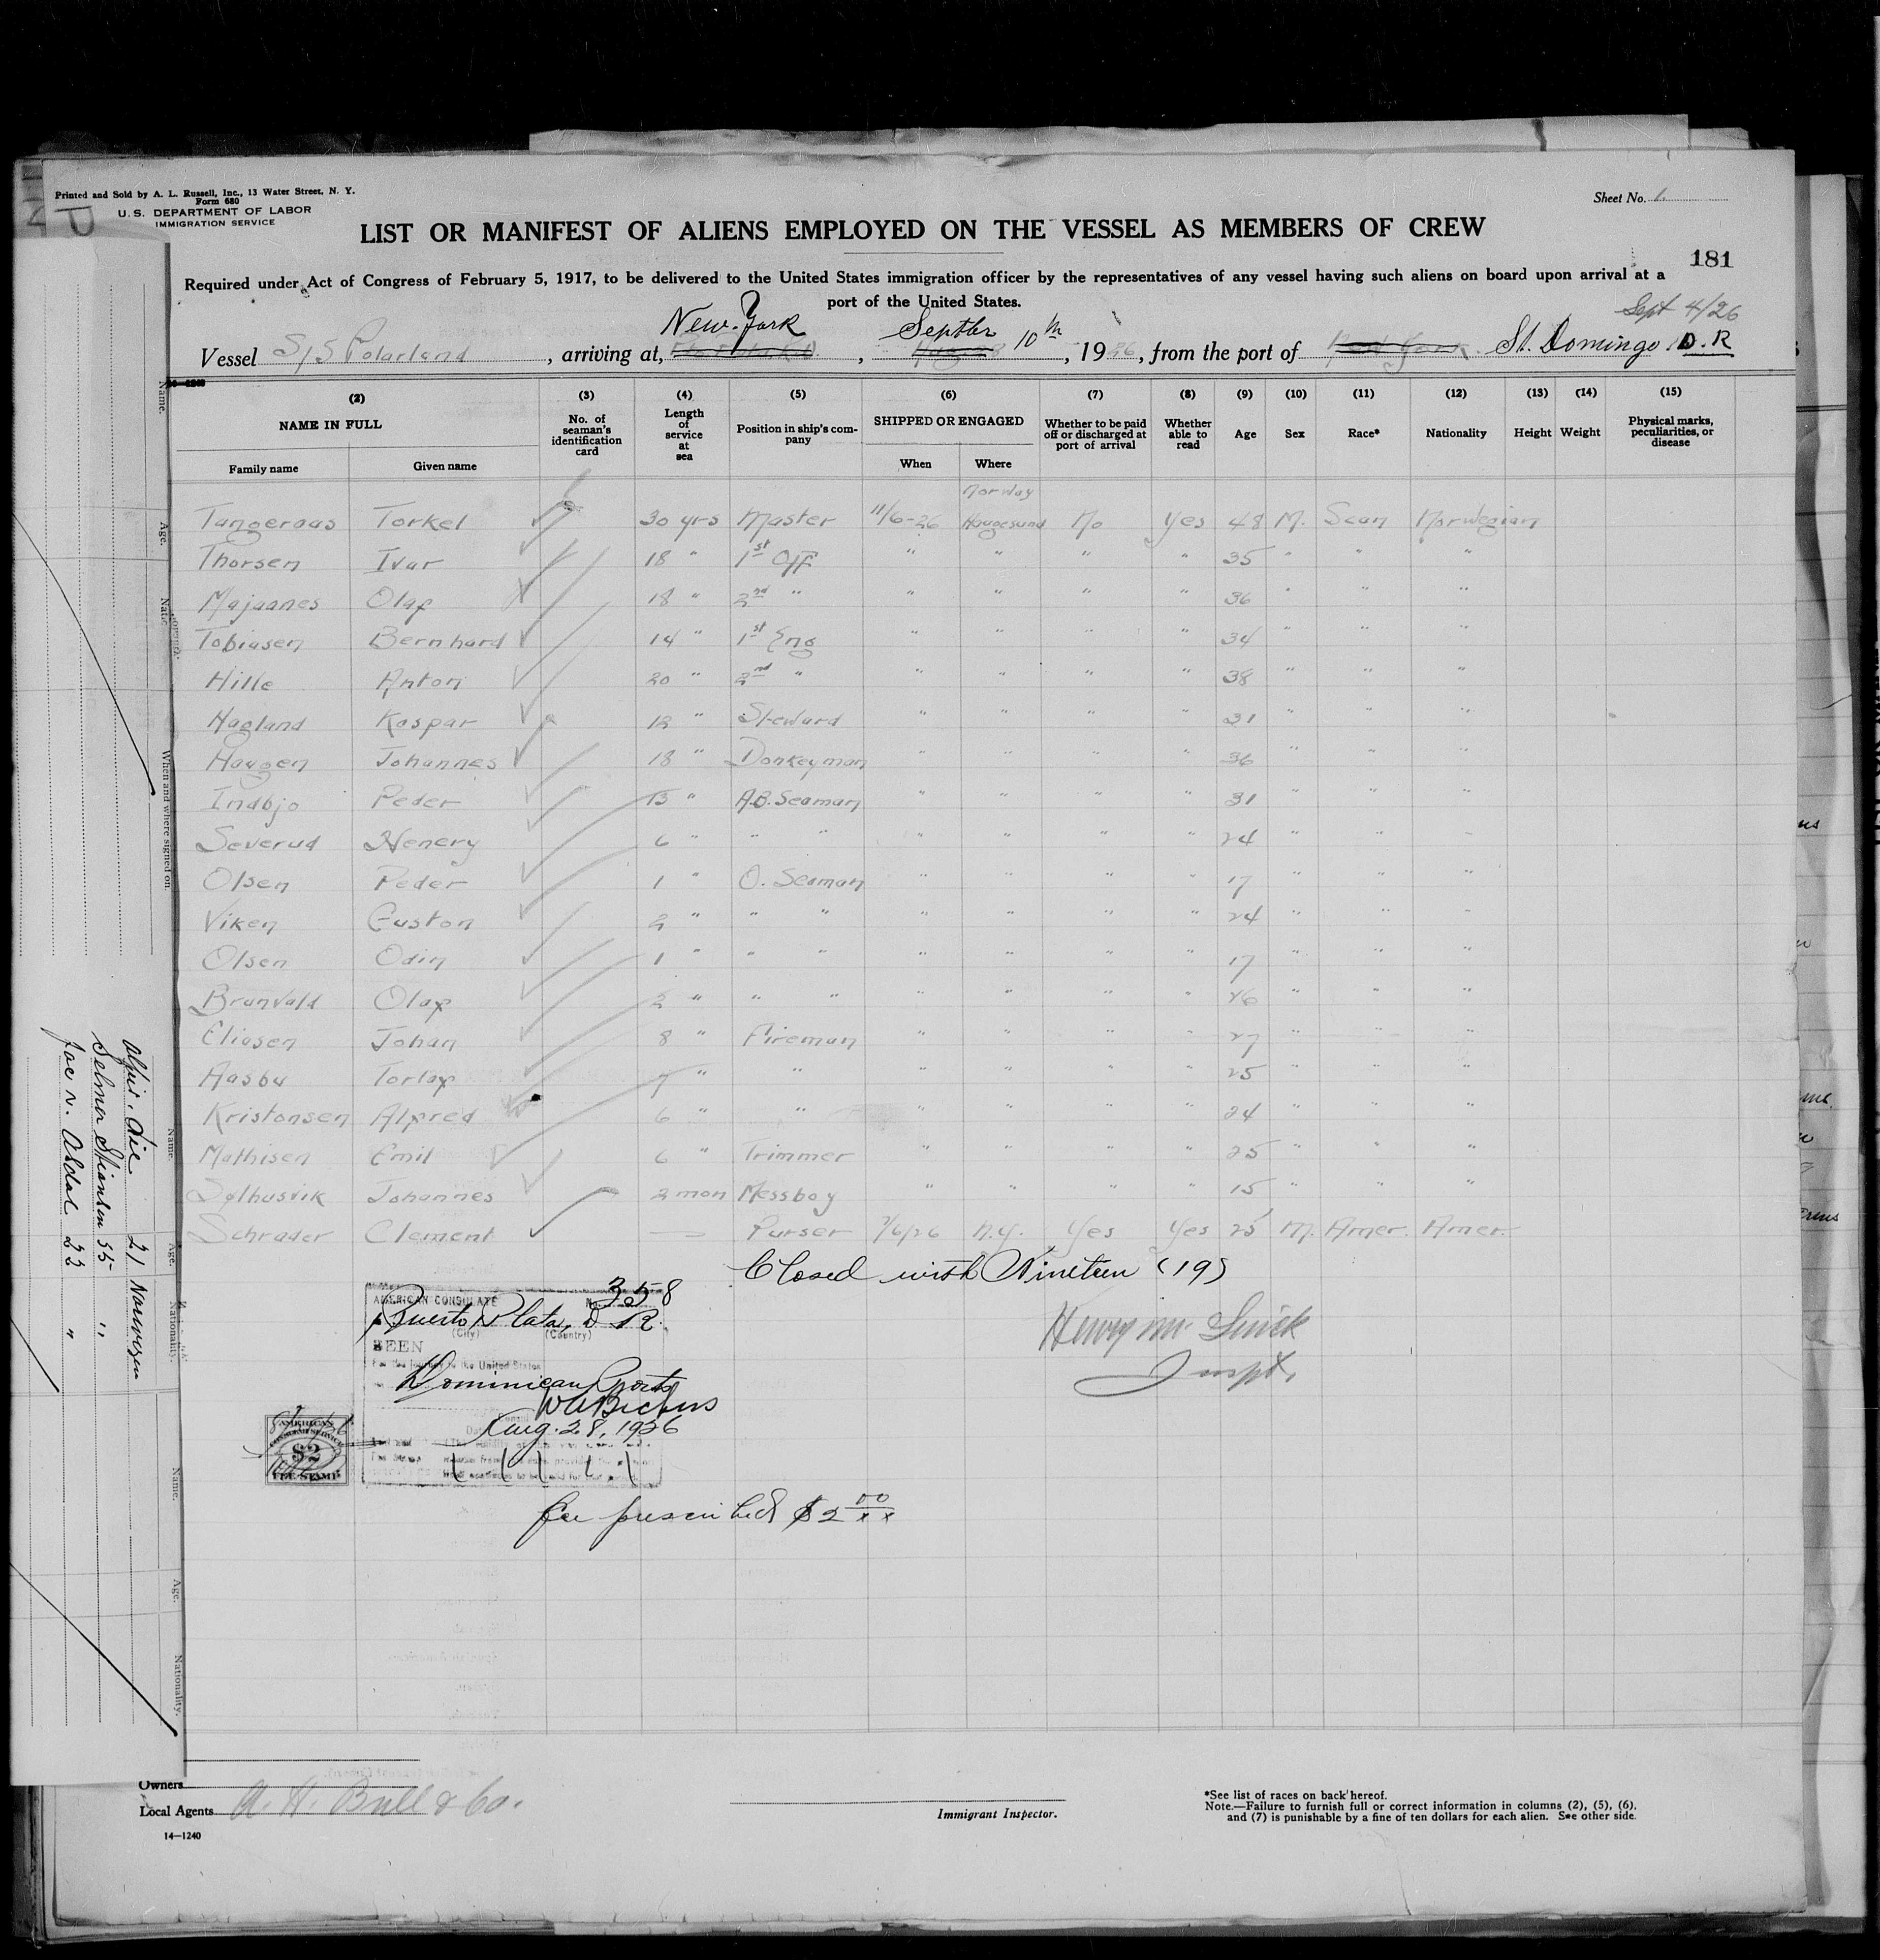 Printed and Sold by A. L. Russell, Inc., 13 Water Street, N. Y.
Form 680
U. S. DEPARTMENT OF LABOR
IMMIGRATION SERVICE
Sheet No. 1.
LIST OR MANIFEST OF ALIENS EMPLOYED ON THE VESSEL AS MEMBERS OF CREW
181
Required under Act of Congress of February 5, 1917, to be delivered to the United States immigration officer by the representatives of any vessel having such aliens on board upon arrival at a
port of the United States.
Sept 4/26
Vessel S/S Polarland, arriving at, New-York, Septber 10th, 1926, from the port of New York St. Domingo D.R
(2) (3) (4) (5) (6) (7) (8) (9) (10) (11) (12) (13) (14) (15)
NAME IN FULL No. of seaman's identification card Length of service at sea Position in ship's company SHIPPED OR ENGAGED Whether to be paid off or discharged at port of arrival Whether able to read Age Sex Race* Nationality Height Weight Physical marks, peculiarities, or disease
Family name Given name When Where
Norway
Tangeraas Torkel 30 yrs Master 11/6-26 Haugesund No Yes 48 M. Scan Norwegian
Thorsen Ivar 18 " 1st Off " " " " 35 " " "
Majaanes Olaf 18 " 2nd " " " " " 36 " " "
Tobiasen Bernhard 14 " 1st Eng " " " " 34 " " "
Hille Anton 20 " 2nd " " " " " 38 " " "
Hagland Kaspar 12 " Steward " " " " 31 " " "
Haugen Johannes 18 " Donkeyman " " " " 36 " " "
Indbjo Peder 13 " A.B. Seaman " " " " 31 " " "
Severud Henery 6 " " " " " " " 24 " " "
Olsen Peder 1 " O. Seaman " " " " 17 " " "
Viken Guston 2 " " " " " " " 24 " " "
Olsen Odin 1 " " " " " " " 17 " " "
Brunvald Olaf 2 " " " " " " " 26 " " "
Eliasen Johan 8 " Fireman " " " " 27 " " "
Aasbu Torlaf 7 " " " " " " 25 " " "
Kristonsen Alfred 6 " " " " " " 24 " " "
Mathisen Emil 6 " Trimmer " " " " 25 " " "
Solhusvik Johannes 2 mon Messboy " " " " 15 " " "
Schrader Clement — Purser 7/6/26 N.Y. Yes Yes 25 M. Amer. Amer.
Closed with Nineteen (19)
AMERICAN CONSULATE No. 358
Puerto Plata, D. R.
(City) (Country)
SEEN
For the journey to the United States
Dominican Ports
Aug. 28, 1926
Insptr.
AMERICAN
CONSULAR SERVICE
$2
FEE STAMP
fee prescribed $2 00/xx
Name. Age. Nationality. When and where signed on.
Name. Age. Nationality.
21 Norwegen
Selmer 55 "
23 "
Name. Age. Nationality.
Owners
Local Agents A. H. Bull & Co.
Immigrant Inspector.
*See list of races on back hereof.
Note.—Failure to furnish full or correct information in columns (2), (5), (6),
and (7) is punishable by a fine of ten dollars for each alien. See other side.
14—1240